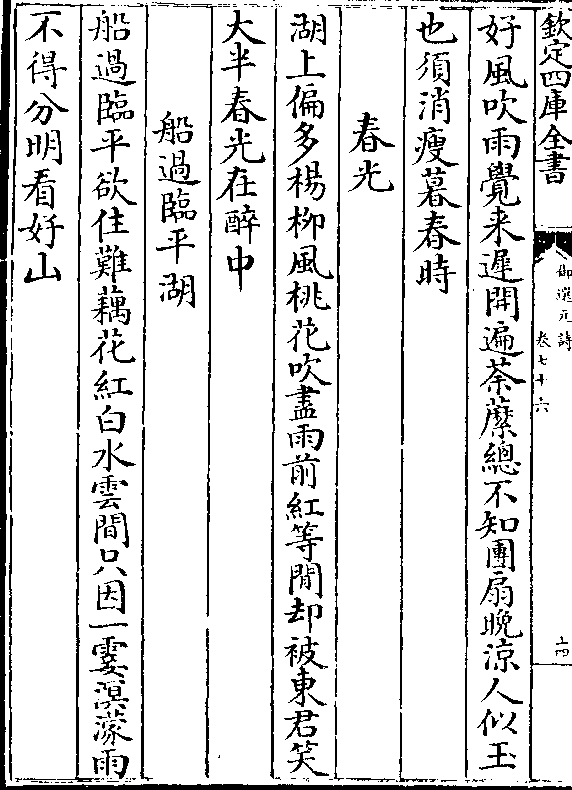 欽定四庫全書
御選元詩
卷七十六
十四
好風吹雨覺来遲開遍荼蘼總不知團扇晚涼人似玉
也須消瘦暮春時
春光
湖上偏多楊柳風桃花吹盡雨前紅等閒却被東君笑
大半春光在醉中
船過臨平湖
船過臨平欲住難藕花紅白水雲間只因一霎溟濛雨
不得分明看好山